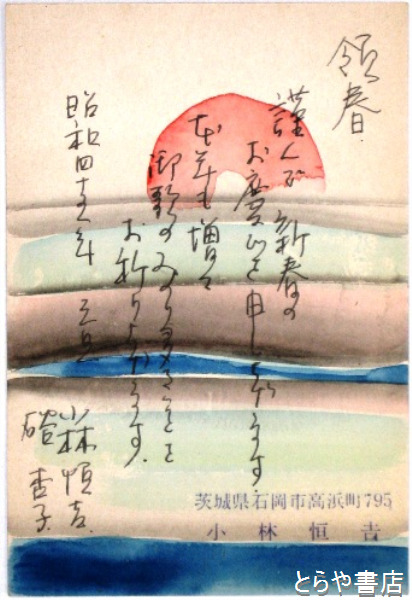 頌春
謹んで新春の
お慶びを申し上げます。
本年も増々
御歌のみのり多きことを
お祈り上げます。
昭和四十五年 元旦
小林恒吉
杏子
茨城県石岡市高浜町795
小林恒吉
とらや書店